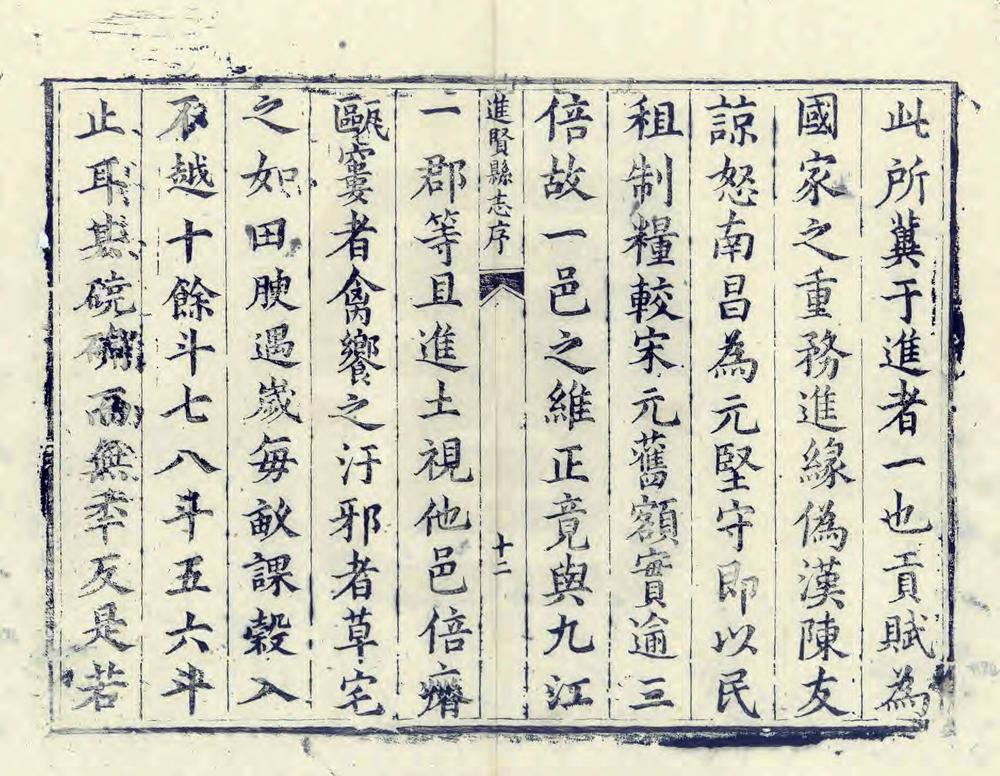 此所冀于進者一也貢賦為
國家之重務進緣偽漢陳友
諒怒南昌為元堅守即以民
租制糧較宋元舊額實逾三
倍故一邑之維正竟與九江
進賢縣志序
十二
一郡等且進土視他邑倍瘠
甌窶者禽饗之汙邪者草宅
之如田腴遇歲每畝課穀入
不越十餘斗七八斗五六斗
止耳其磽而無年反是若